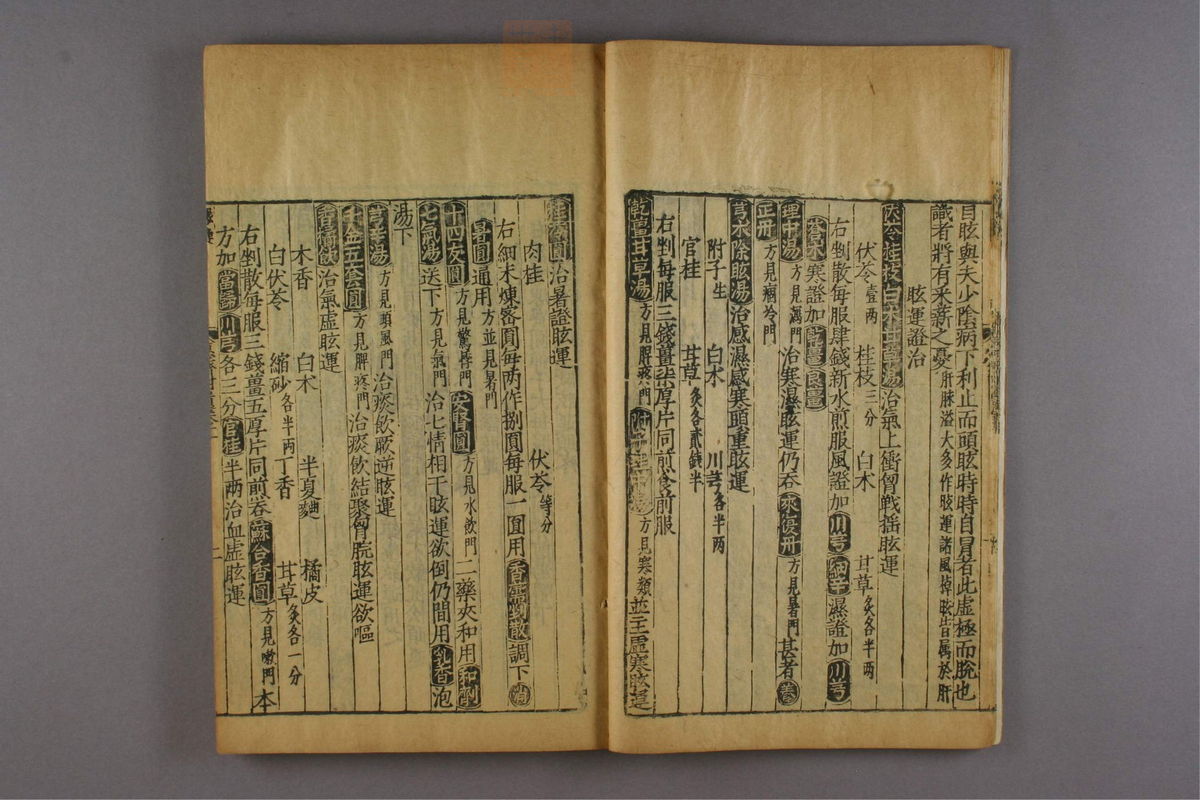 目眩與夫少陰病下利止而頭眩時時自冒者此虚極而脫也
識者將有采薪之憂肝脉溢大多作眩運諸風掉眩皆属於肝
眩運證治
茯苓桂枝白朮甘草湯治氣上衝胷戰揺眩運
伏苓壹两 桂枝三分 白朮 甘草炙各半两
右剉散每服肆錢新水煎服風證加川芎細辛濕證加川芎
蒼朮寒證加乾薑良薑
理中湯方見癘門治寒濕眩運仍吞來復丹方見暑門甚者養
正丹方見痼冷門
芎朮除眩湯治感濕感寒頭重眩運
附子生 白朮 川芎各半两
官桂 甘草炙各貳錢半
右剉每服三錢薑柒厚片同煎食前服
乾薑甘草湯方見脾疼門附子理中湯方見寒類並主虛寒眩運
桂苓圓治暑證眩運
肉桂 伏苓等分
右細末煉蜜圓每两作捌圓每服一圓用香薷散調下消
暑圓通用方並見暑門
十四友圓方見驚悸門安腎圓方見水飲門二藥夾和用和劑
七氣湯送下方見氣門治七情相干眩運欲倒仍間用乳香泡
湯下
芎辛湯方見頭風門治痰飲厥逆眩運
千金五套圓方見脾疼門治痰飲結聚胷脘眩運欲嘔
香橘飲治氣虚眩運
木香 白朮 半夏麯 橘皮
白伏苓 縮砂各半两 丁香 甘草炙各一分
右剉散每服三錢薑五厚片同煎吞蘇合香圓方見嗽門本
方加當歸川芎各三分官桂半两治血虚眩運
二